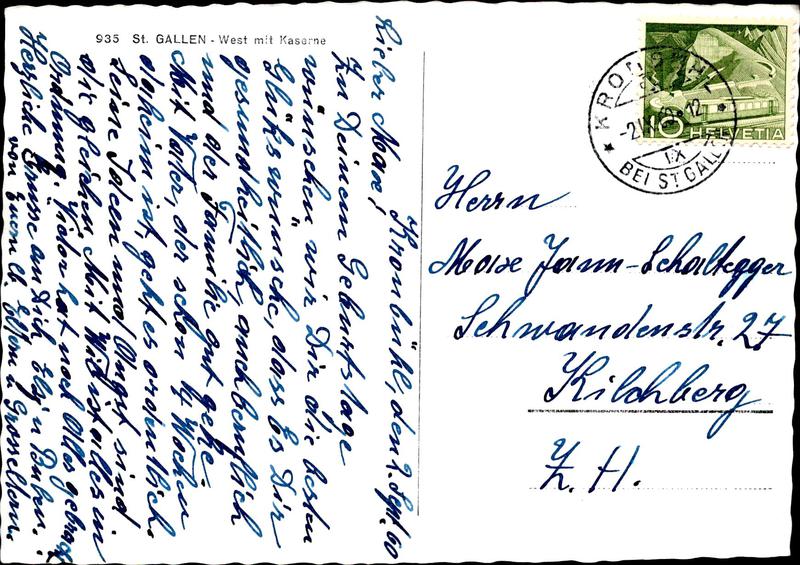 935 St. GALLEN - West mit Kaserne
Kronbühl, den 2. Sept. 60
Lieber Max!
Zu Deinem Geburtstage
wünschen wir Dir die besten
Glückswünsche, dass es Dir
gesundheitlich, auch beruflich
und der Familie gut gehe.
Mit Vater, der schon 14 Wochen
daheim ist, geht es ordentlich.
Seine Ideen und Angst sind
die gleichen. Mit Will ist alles in
Ordnung. Vidor hat noch Alles gebracht
Herzliche Grüsse an Dich, Elsj u. Buben.
von Euren lb. Eltern u. Grosseltern.
KRONBÜHL
-2.IX.60.12
IX
BEI ST. GALLEN
10 HELVETIA
Herrn
Max Jann-Schaltegger
Schwandenstr. 27
Kilchberg
Z.H.